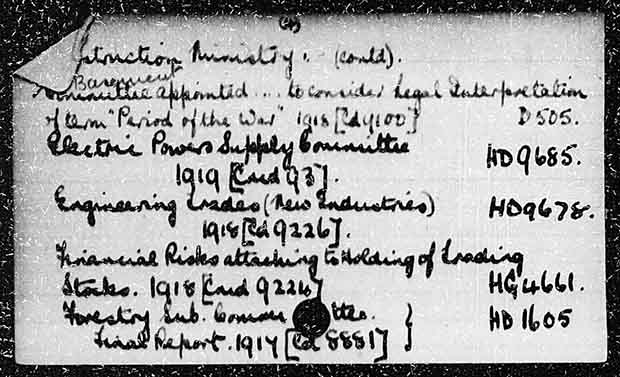 struction Ministry. (contd).
Basement
Committee appointed ... to consider Legal Interpretation
of term "Period of the War" 1918 [Cd 9100] D505.
Electric Powers Supply Committee
1919 [Cmd 93]. HD9685.
Engineering Trades (New Industries)
1918 [Cd 9226]. HD9678.
Financial Risks attaching to Holding of Trading
Stocks. 1918 [Cmd 9224] HG4661.
Forestry Sub. Comm ttee.
Final Report. 1917 [Cd 8881] } HD1605